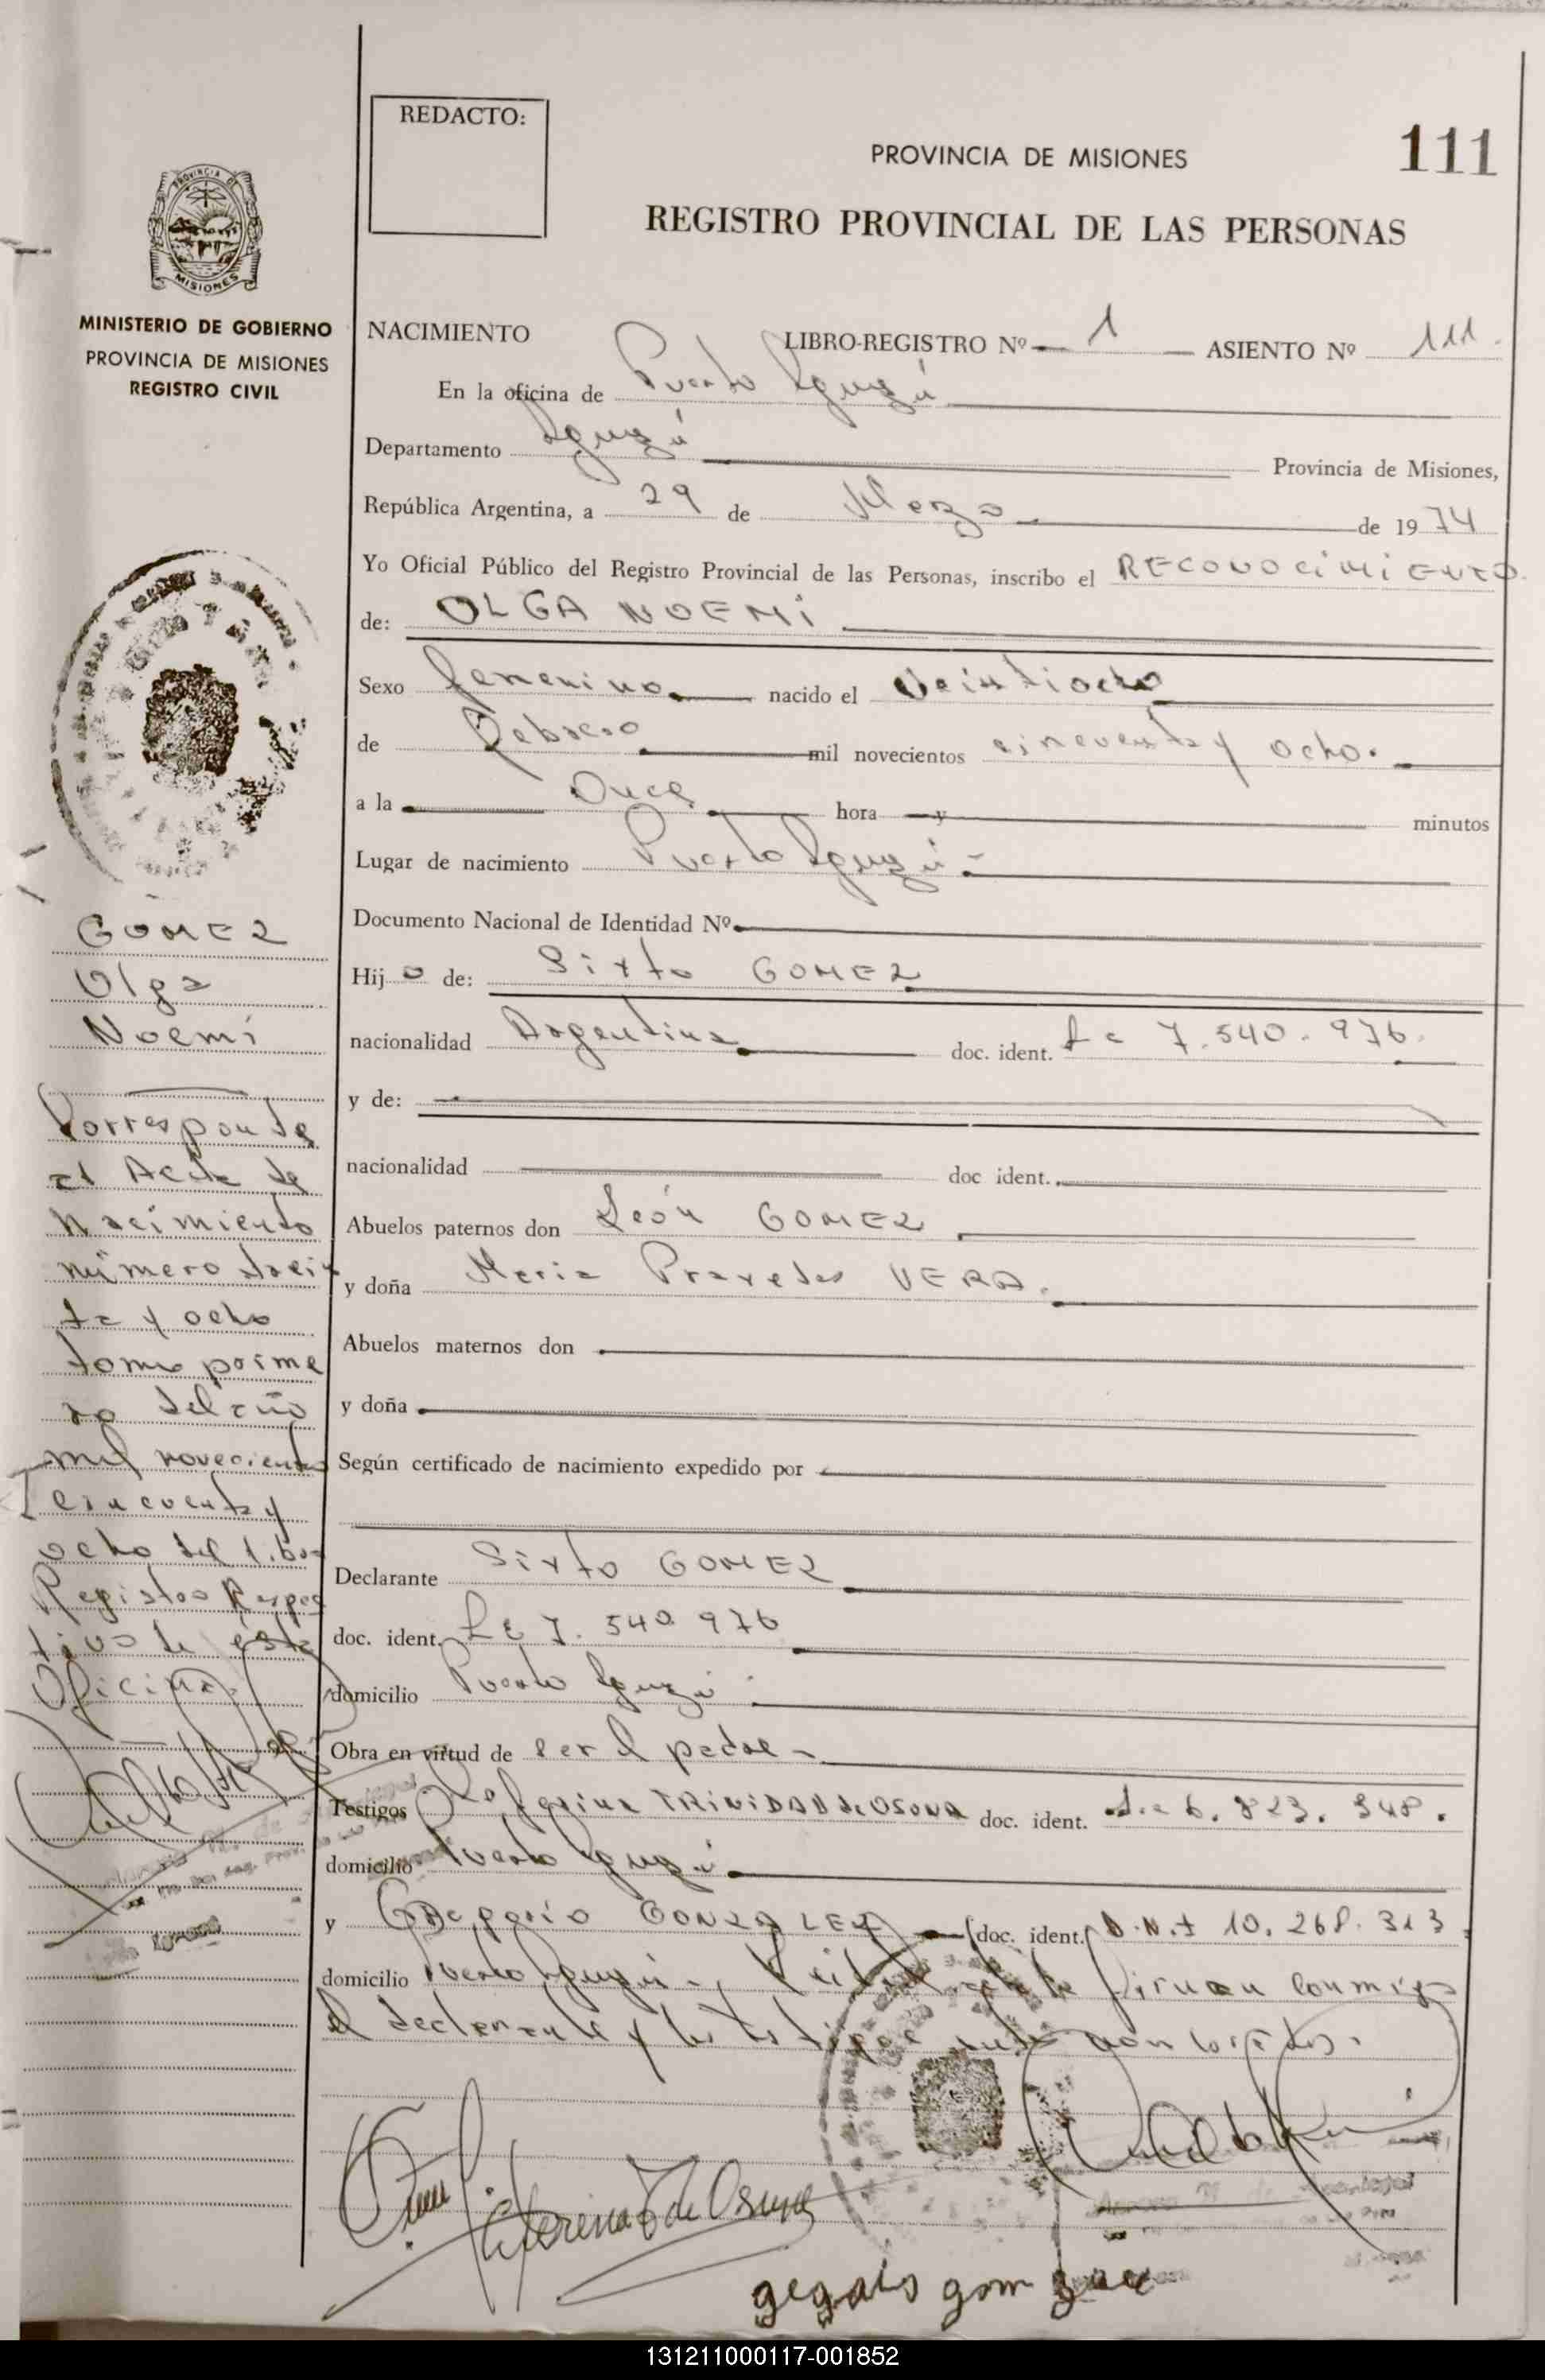 REDACTO:
PROVINCIA DE MISIONES
111
REGISTRO PROVINCIAL DE LAS PERSONAS
PROVINCIA DE
MISIONES
MINISTERIO DE GOBIERNO
PROVINCIA DE MISIONES
REGISTRO CIVIL
GOMEZ
Olga
Noemi
Corresponde
al Acta de
Nacimiento
número trein
ta y ocho
tomo prime
ro del año
mil novecientos
cincuenta y
ocho del libro
Registro Respec
tivo de ésta
Oficina
NACIMIENTO LIBRO-REGISTRO Nº 1 ASIENTO Nº 111.
En la oficina de Puerto Iguazú
Departamento Iguazú Provincia de Misiones,
República Argentina, a 29 de Marzo de 1974
Yo Oficial Público del Registro Provincial de las Personas, inscribo el RECONOCIMIENTO.
de: OLGA NOEMI
Sexo femenino nacido el Veintiocho
de Febrero mil novecientos cincuenta y ocho.
a la Once hora y minutos
Lugar de nacimiento Puerto Iguazú -
Documento Nacional de Identidad Nº
Hij o de: Sixto GOMEZ
nacionalidad Argentina doc. ident. Le 7.540.976.
y de:
nacionalidad doc ident.
Abuelos paternos don León GOMEZ
y doña Maria Praxedes VERA.
Abuelos maternos don
y doña
Según certificado de nacimiento expedido por
Declarante Sixto GOMEZ
doc. ident. Le 7. 540 976
domicilio Puerto Iguazú
Obra en virtud de ser el padre -
Testigos Ceferina TRINIDAD de OSUNA doc. ident. 6.823.348.
domicilio Puerto Iguazú
y Gregorio GONZALEZ doc. ident. D.N.I 10.268.313
domicilio Puerto Iguazú - Leida el acta firman conmigo
el declarante y los testigos
Ceferina T de Osuna
131211000117-001852